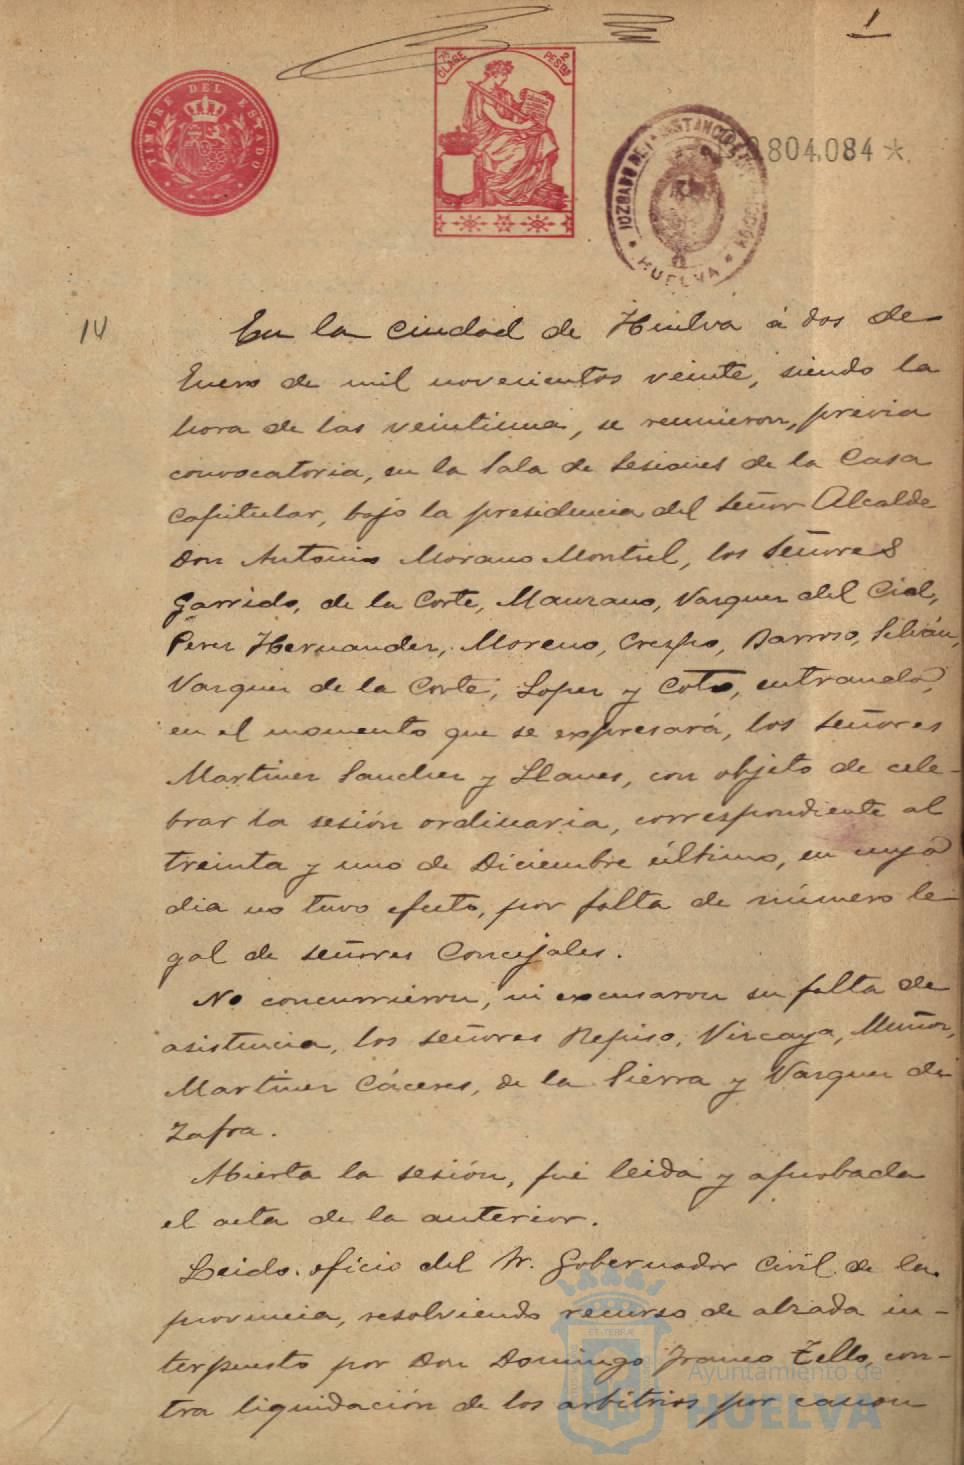 1
TIMBRE DEL ESTADO
7ª CLASE
2 PESETAS
804.084 *
JUZGADO DE 1ª INSTANCIA
HUELVA
14
En la ciudad de Huelva á dos de
Enero de mil novecientos veinte, siendo la
hora de las veintiuna, se reunieron, previa
convocatoria, en la Sala de Sesiones de la Casa
Capitular, bajo la presidencia del Señor Alcalde
Don Antonio Morano Montiel, los Señores
Garrido, de la Corte, Manzano, Vazquez del Cid,
Perez Hernandez, Moreno, Crespo, Barroso, Selván,
Vazquez de la Corte, Lopez y Coto, entrando,
en el momento que se expresará, los Señores
Martinez Sanchez y Llanes, con objeto de cele-
brar la sesión ordinaria, correspondiente al
treinta y uno de Diciembre último, en cuyo
dia no tuvo efecto, por falta de número le-
gal de señores Concejales.
No concurrieron, ni excusaron su falta de
asistencia, los señores Repiso, Vizcaya, Muñoz,
Martinez Cáceres, de la Sierra y Vazquez de
Zafra.
Abierta la sesión, fué leida y aprobada
el acta de la anterior.
Leido oficio del Sr. Gobernador Civil de la
provincia, resolviendo recurso de alzada in-
terpuesto por Don Domingo Franco Tello, con-
tra liquidación de los arbitrios por canon
Ayuntamiento de
HUELVA